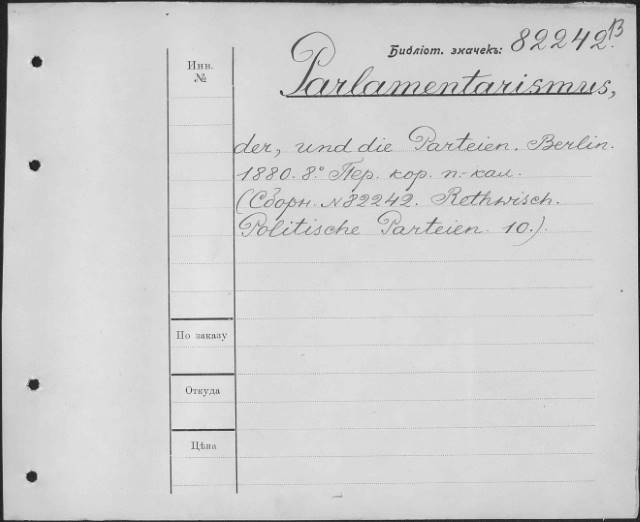 Библіот. значекъ: 82242.B
Инв.
№
Parlamentarismus,
der, und die Parteien. Berlin.
1880. 8.° Пер. кор. п.-кал.
(Сборн. №82242. Rethwisch.
Politische Parteien. 10.)
По заказу
Откуда
Цѣна